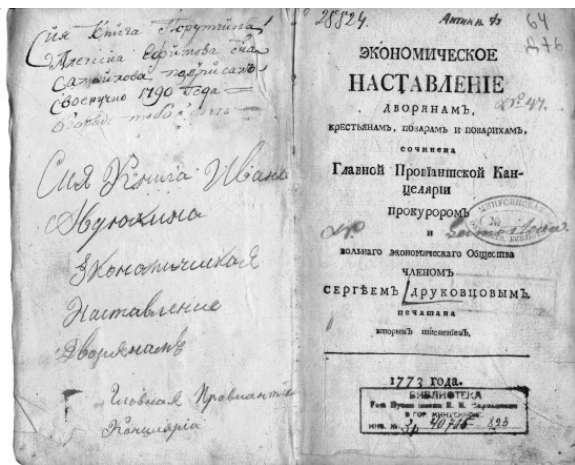 Сия Книга Порутчика
Алексіна Ефимова сна
Самойлова подписалъ
своеручно 1790 года
Сия Книга Ивана
Экономичиская
Наставление
Дварянамъ
Главная Правианти
Канцлариа
28824.
Антикв.
64
276
ЭКОНОМИЧЕСКОЕ
НАСТАВЛЕНІЕ
ДВОРЯНАМЪ,
№ 47.
КРЕСТЬЯНАМЪ, ПОВАРАМЪ И ПОВАРИХАМЪ,
СОЧИНЕНА
Главной Провіантской Кан-
целяріи
прокуроромъ
МИНУСИНСКАЯ
№
и
вольнаго экономическаго Общества
членомъ
СЕРГѢЕМЪ ДРУКОВЦОВЫМЪ.
печатана
вторымъ тисненіемъ.
1773 года.
БИБЛИОТЕКА
Гос. Музея имени Н. М. Мартьянова
В ГОР. МИНУСИНСК.
ИНВ. № 40715 823